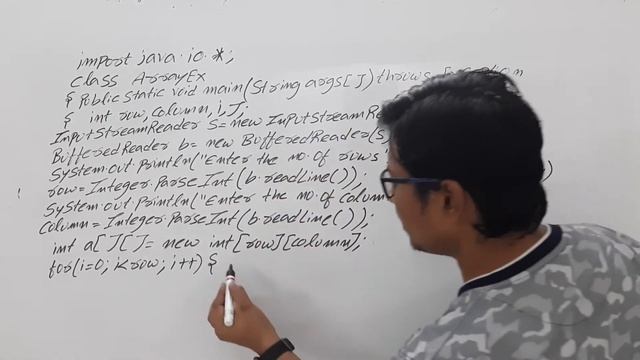 import java.io.*;
class ArrayEx
{ Public static void main(String args[]) throws
{ int row, column, i, J;
InputStreamReader s = new InputStream
BufferedReader b = new BufferedReader(s
System.out.Println("Enter the no.of rows
row=Integer.ParseInt(b.readLine());
System.out.Println("Enter the no.of Column
Column=Integer.ParseInt(b.readLine());
int a[][]= new int[row][column];
for(i=0; i<row; i++) {